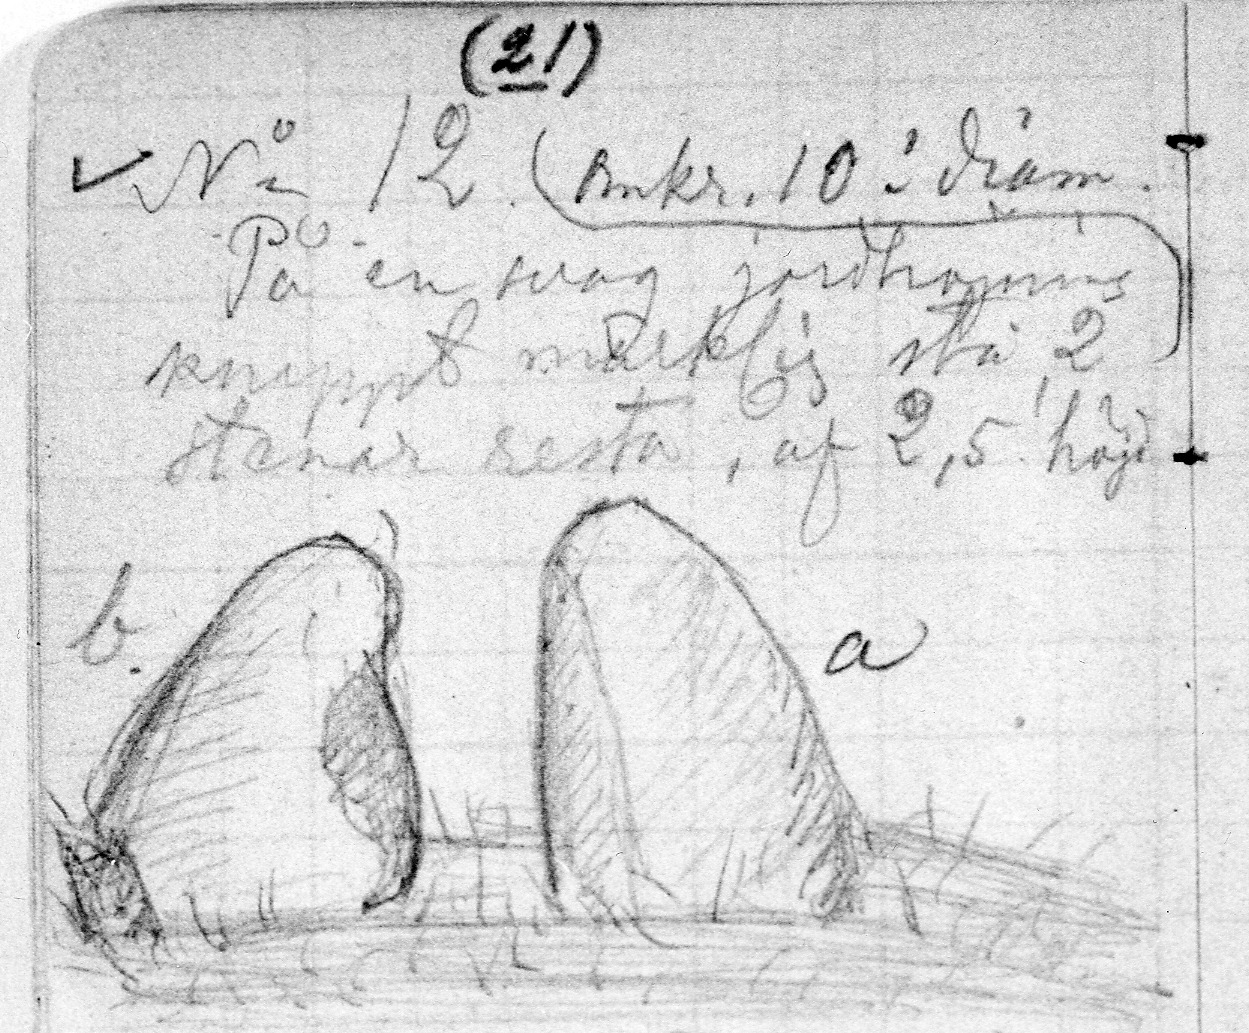 (21)
No 12. (Omkr. 10' i diam.
På en svag jordhöjning
knappt märklig stå 2
stenar resta, af 2,5' höjd
b. a